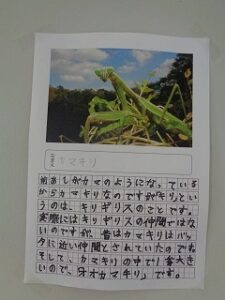 カマキリ
前あしがカマのようになっている
からカマキリなのですがキリとい
うのは、キリギリスのことです。
実際にはキリギリスの仲間ではない
のですが、昔はカマキリはバッ
タに近い仲間とされていたのでね
そして、カマキリの中で1番大き
いので、「オオカマキリ」です。